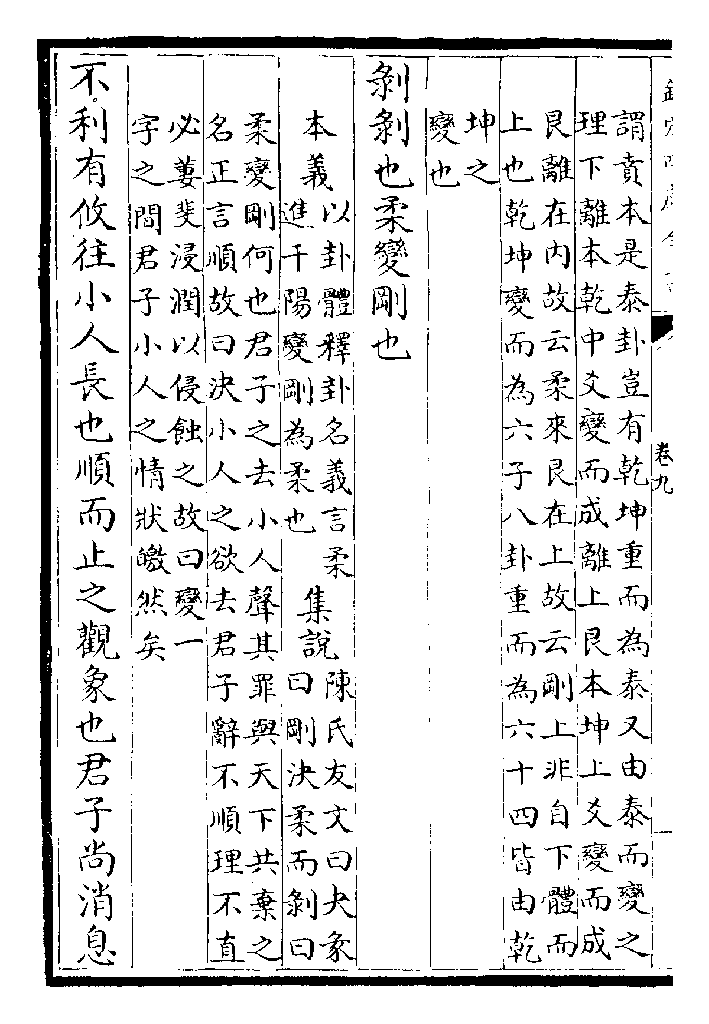 欽定四庫全書
卷九
謂賁本是泰卦豈有乾坤重而為泰又由泰而變之
理下離本乾中爻變而成離上艮本坤上爻變而成
艮離在內故云柔來艮在上故云剛上非自下體而
上也乾坤變而為六子八卦重而為六十四皆由乾
坤之
變也
剝剝也柔變剛也
本義
以卦體釋卦名義言柔
進干陽變剛為柔也
集說
陳氏友文曰夬彖
曰剛決柔而剝曰
柔變剛何也君子之去小人聲其罪與天下共棄之
名正言順故曰決小人之欲去君子辭不順理不直
必萋斐浸潤以侵蝕之故曰變一
字之間君子小人之情狀皦然矣
不利有攸往小人長也順而止之觀象也君子尚消息